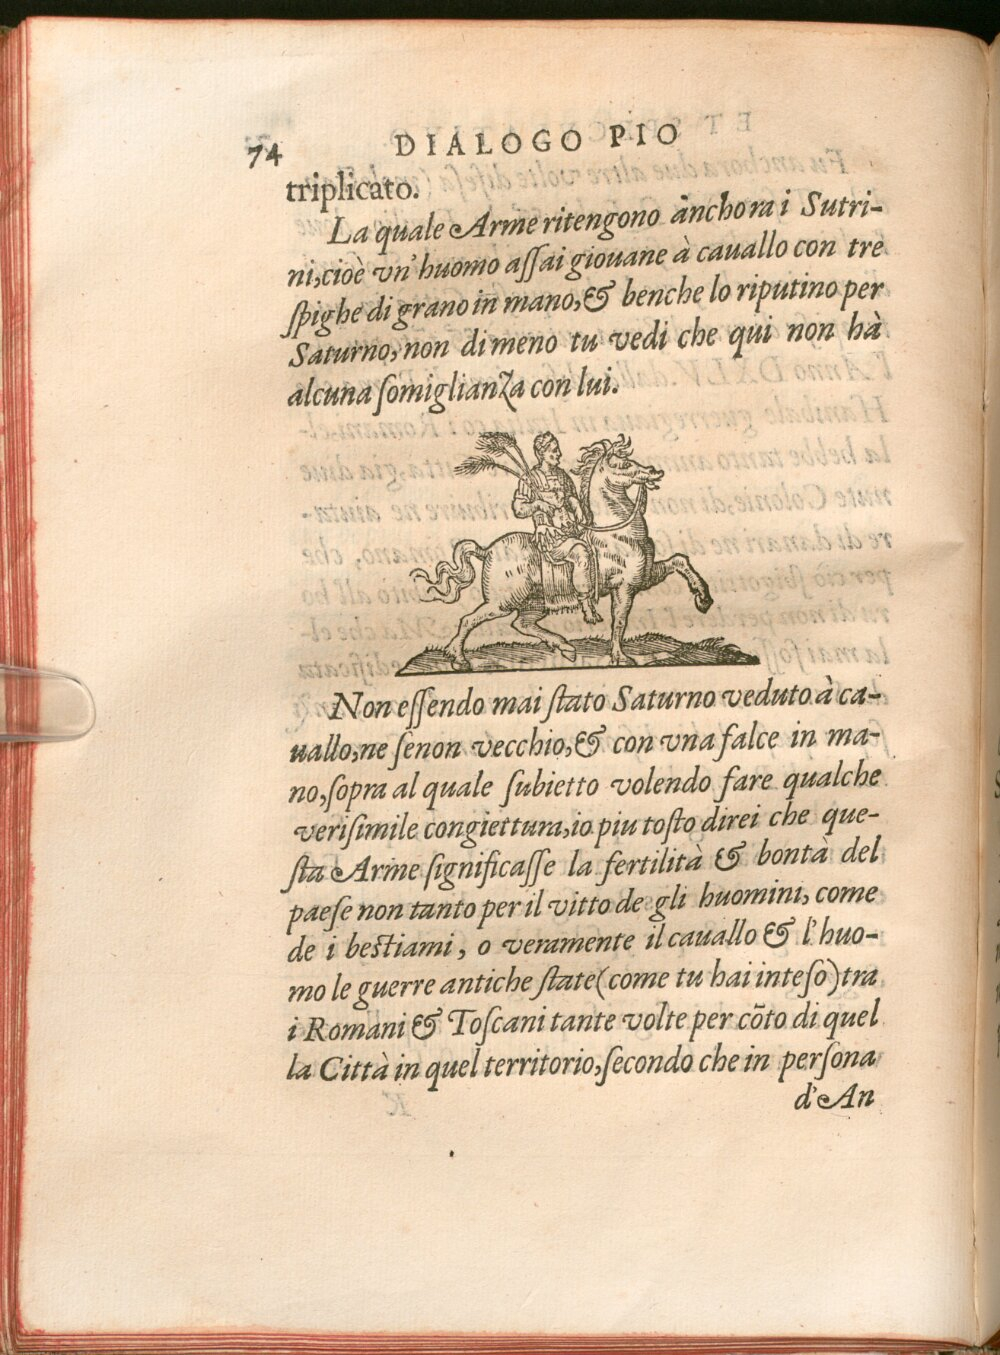 74 DIALOGO PIO
triplicato.
La quale Arme ritengono anchora i Sutri-
ni, cioè vn' huomo aſſai giouane à cauallo con tre
ſpighe di grano in mano, & benche lo riputino per
Saturno, non di meno tu vedi che qui non hà
alcuna ſomiglianza con lui.
Non eſſendo mai ſtato Saturno veduto à ca-
uallo, ne ſenon vecchio, & con vna falce in ma-
no, ſopra al quale ſubietto volendo fare qualche
veriſimile congiettura, io piu toſto direi che que-
ſta Arme ſignificaſſe la fertilità & bontà del
paeſe non tanto per il vitto de gli huomini, come
de i beſtiami, o veramente il cauallo & l'huo-
mo le guerre antiche ſtate (come tu hai inteſo) tra
i Romani & Toſcani tante volte per cōto di quel
la Città in quel territorio, ſecondo che in perſona
d'An